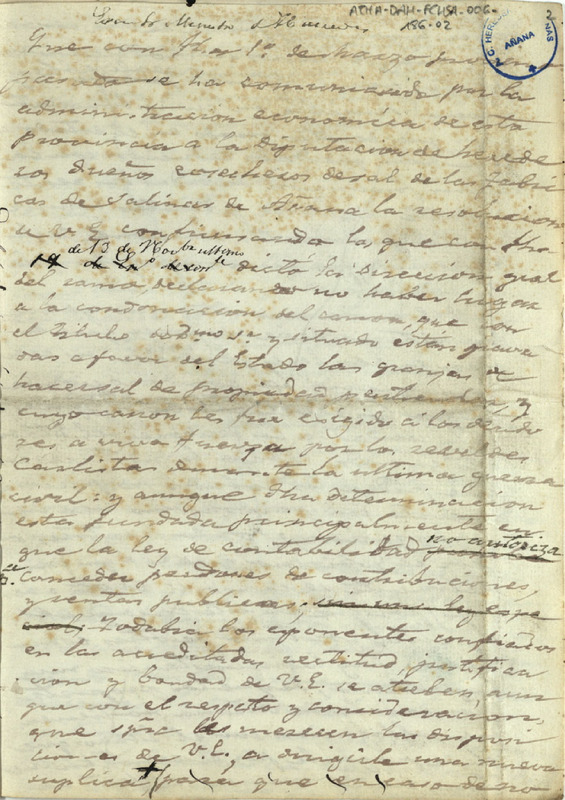 ATHA-DAH-FCHSA-006-
186-02
G. HEREDA NAS
AÑANA
2
Excmo Sr Ministro d Hacienda
Que con fha 1º de Marzo proximo
pasado se ha comunicado por la
administracion economica de esta
Provincia a la diputacion de herede
ros dueños cosecheros de sal de las Fabri
cas de Salinas de Añana la resolucion
de V.E. confirmando la que con fha
de 13 de Novbe ultimo
dictó la Direccion gral
del ramo declarando no haber lugar
a la condonacion del canon, que con
el titulo y situado estan grava
das a favor del Estado las granjas de
hacer sal de propiedad particular, y
cuyo canon les fue exigido á los deudo
res a viva fuerza por los rebeldes
carlistas durante la ultima guerra
civil: y aunque dha determinacion
esta fundada principalmente en
que la ley de contabilidad no autoriza
conceder perdones de contribuciones,
y rentas publicas, sin una ley espe
cial. Todabia los esponentes confiados
en la acreditada rectitud, justifica
cion y bondad de V.E. se atreben, aun
que con el respeto y consideracion,
que spre les merecen las disposi
ciones de V.E., a dirigirle una nueva
suplica para que en caso de no